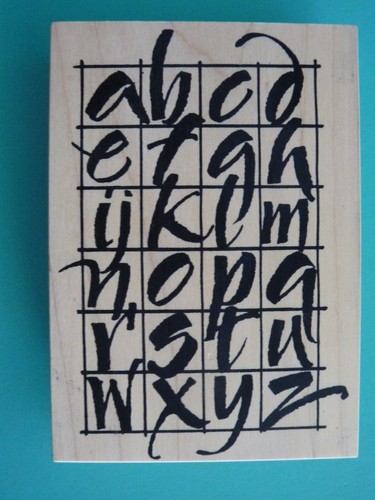 a b c d
e f g h
ij k l m
n o p q
r s t u
w x y z